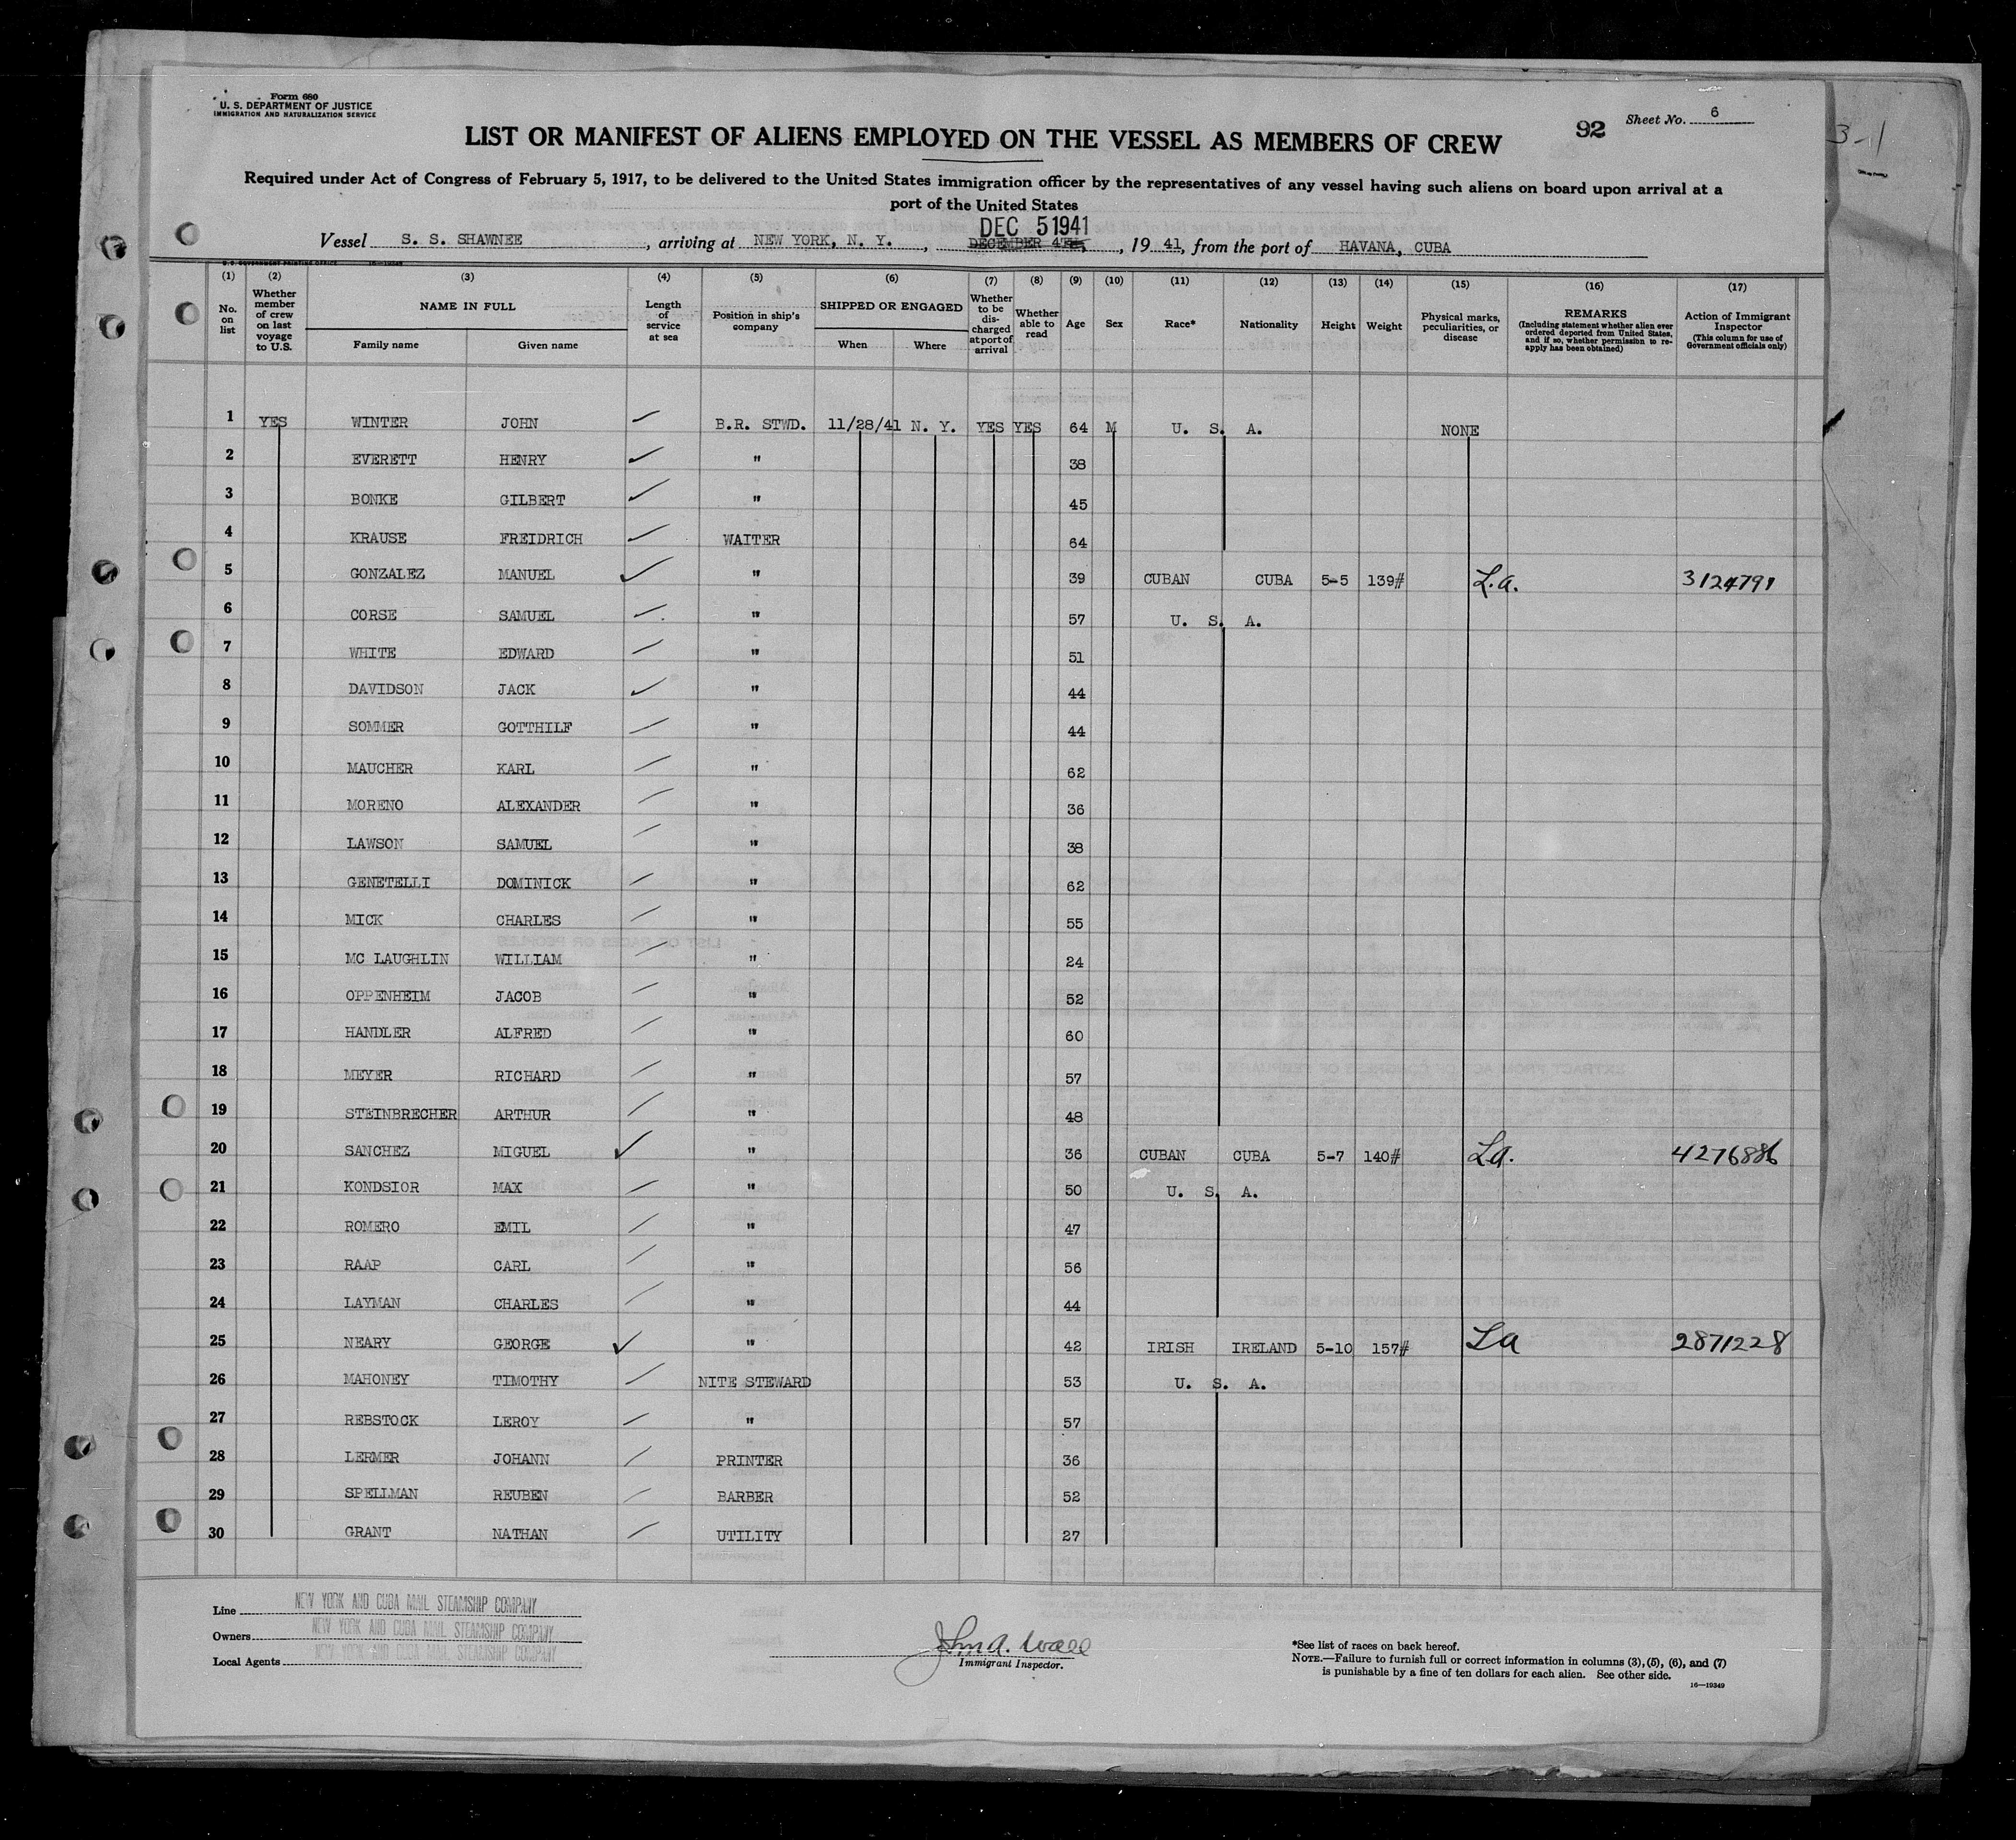 Form 680
U. S. DEPARTMENT OF JUSTICE
IMMIGRATION AND NATURALIZATION SERVICE
92 Sheet No. 6
3-1
LIST OR MANIFEST OF ALIENS EMPLOYED ON THE VESSEL AS MEMBERS OF CREW
Required under Act of Congress of February 5, 1917, to be delivered to the United States immigration officer by the representatives of any vessel having such aliens on board upon arrival at a
port of the United States
DEC 5 1941
Vessel S. S. SHAWNEE, arriving at NEW YORK, N. Y., DECEMBER 4TH, 1941, from the port of HAVANA, CUBA
(1) (2) (3) (4) (5) (6) (7) (8) (9) (10) (11) (12) (13) (14) (15) (16) (17)
No. on list
Whether member of crew on last voyage to U.S.
NAME IN FULL
Family name Given name
Length of service at sea
Position in ship's company
SHIPPED OR ENGAGED
When Where
Whether to be discharged at port of arrival
Whether able to read
Age
Sex
Race*
Nationality
Height
Weight
Physical marks, peculiarities, or disease
REMARKS
(Including statement whether alien ever ordered deported from United States, and if so, whether permission to reapply has been obtained)
Action of Immigrant Inspector
(This column for use of Government officials only)
1 YES WINTER JOHN B.R. STWD. 11/28/41 N. Y. YES YES 64 M U. S. A. NONE
2 EVERETT HENRY " 38
3 BONKE GILBERT " 45
4 KRAUSE FREIDRICH WAITER 64
5 GONZALEZ MANUEL " 39 CUBAN CUBA 5-5 139# L.a. 3124791
6 CORSE SAMUEL " 57 U. S. A.
7 WHITE EDWARD " 51
8 DAVIDSON JACK " 44
9 SOMMER GOTTHILF " 44
10 MAUCHER KARL " 62
11 MORENO ALEXANDER " 36
12 LAWSON SAMUEL " 38
13 GENETELLI DOMINICK " 62
14 MICK CHARLES " 55
15 MC LAUGHLIN WILLIAM " 24
16 OPPENHEIM JACOB " 52
17 HANDLER ALFRED " 60
18 MEYER RICHARD " 57
19 STEINBRECHER ARTHUR " 48
20 SANCHEZ MIGUEL " 36 CUBAN CUBA 5-7 140# La. 4276886
21 KONDSIOR MAX " 50 U. S. A.
22 ROMERO EMIL " 47
23 RAAP CARL " 56
24 LAYMAN CHARLES " 44
25 NEARY GEORGE " 42 IRISH IRELAND 5-10 157# La 2871228
26 MAHONEY TIMOTHY NITE STEWARD 53 U. S. A.
27 REBSTOCK LEROY " 57
28 LERMER JOHANN PRINTER 36
29 SPELLMAN REUBEN BARBER 52
30 GRANT NATHAN UTILITY 27
Line NEW YORK AND CUBA MAIL STEAMSHIP COMPANY
Owners NEW YORK AND CUBA MAIL STEAMSHIP COMPANY
Local Agents NEW YORK AND CUBA MAIL STEAMSHIP COMPANY
John A. Wall
Immigrant Inspector.
*See list of races on back hereof.
NOTE.—Failure to furnish full or correct information in columns (3), (5), (6), and (7)
is punishable by a fine of ten dollars for each alien. See other side.
16—19349